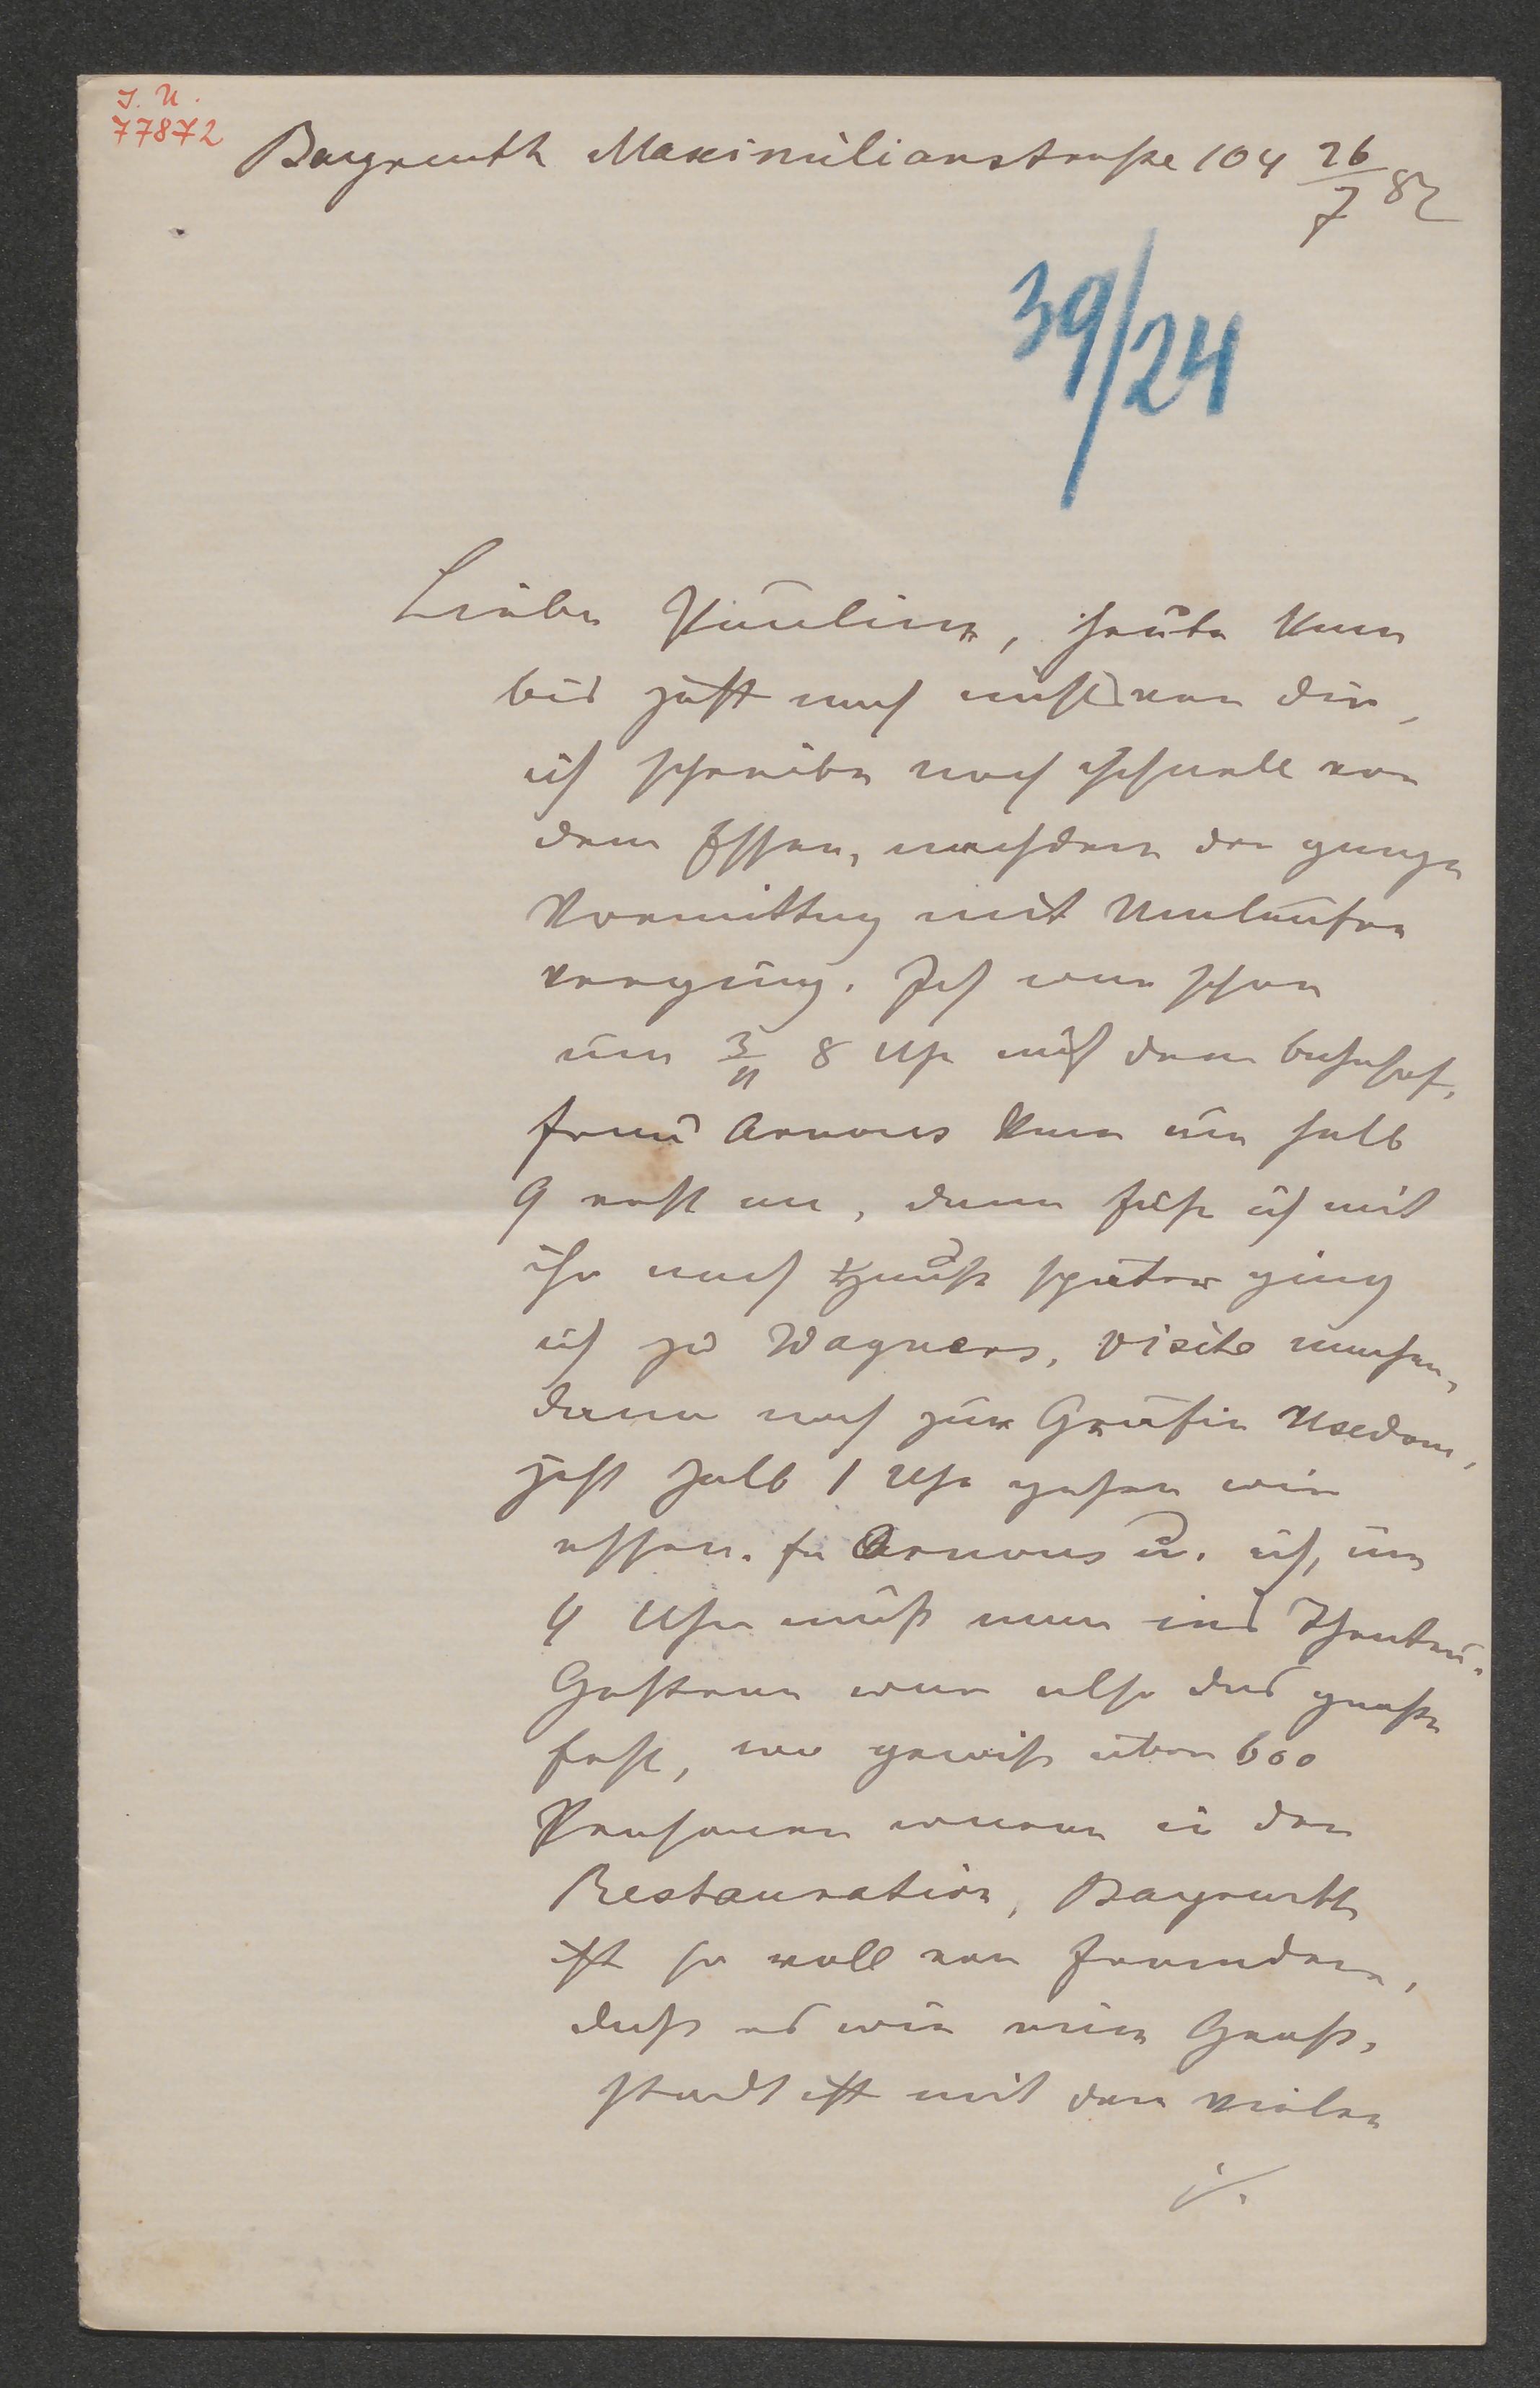 I. N.
77872
Bayreuth Maximilianstraße 104 26/7 82
39/24
Liebe Pauline, heute kam
bis jetzt noch nichts von dir,
ich schreibe noch schnell vor
dem Essen, nachdem der ganze
Vormittag mit Umlaufen
verging. Ich war schon
um 3/4 8 Uhr auf dem Bahnhof,
Frau Arnous kam um halb
9 erst an, dann fuhr ich mit
ihr nach Hause später ging
ich zu Wagners, Visite machen,
dann noch zur Gräfin Usedom,
jetzt halb 1 Uhr gehen wir
essen. Fr Arnous u. ich, um
4 Uhr muß man ins Theater.
Gestern war also das große
Fest, wo gewiß über 600
Personen waren in der
Restauration, Bayreuth
ist so voll von Fremden,
daß es wie eine Groß,
stadt ist mit den vielen
./.